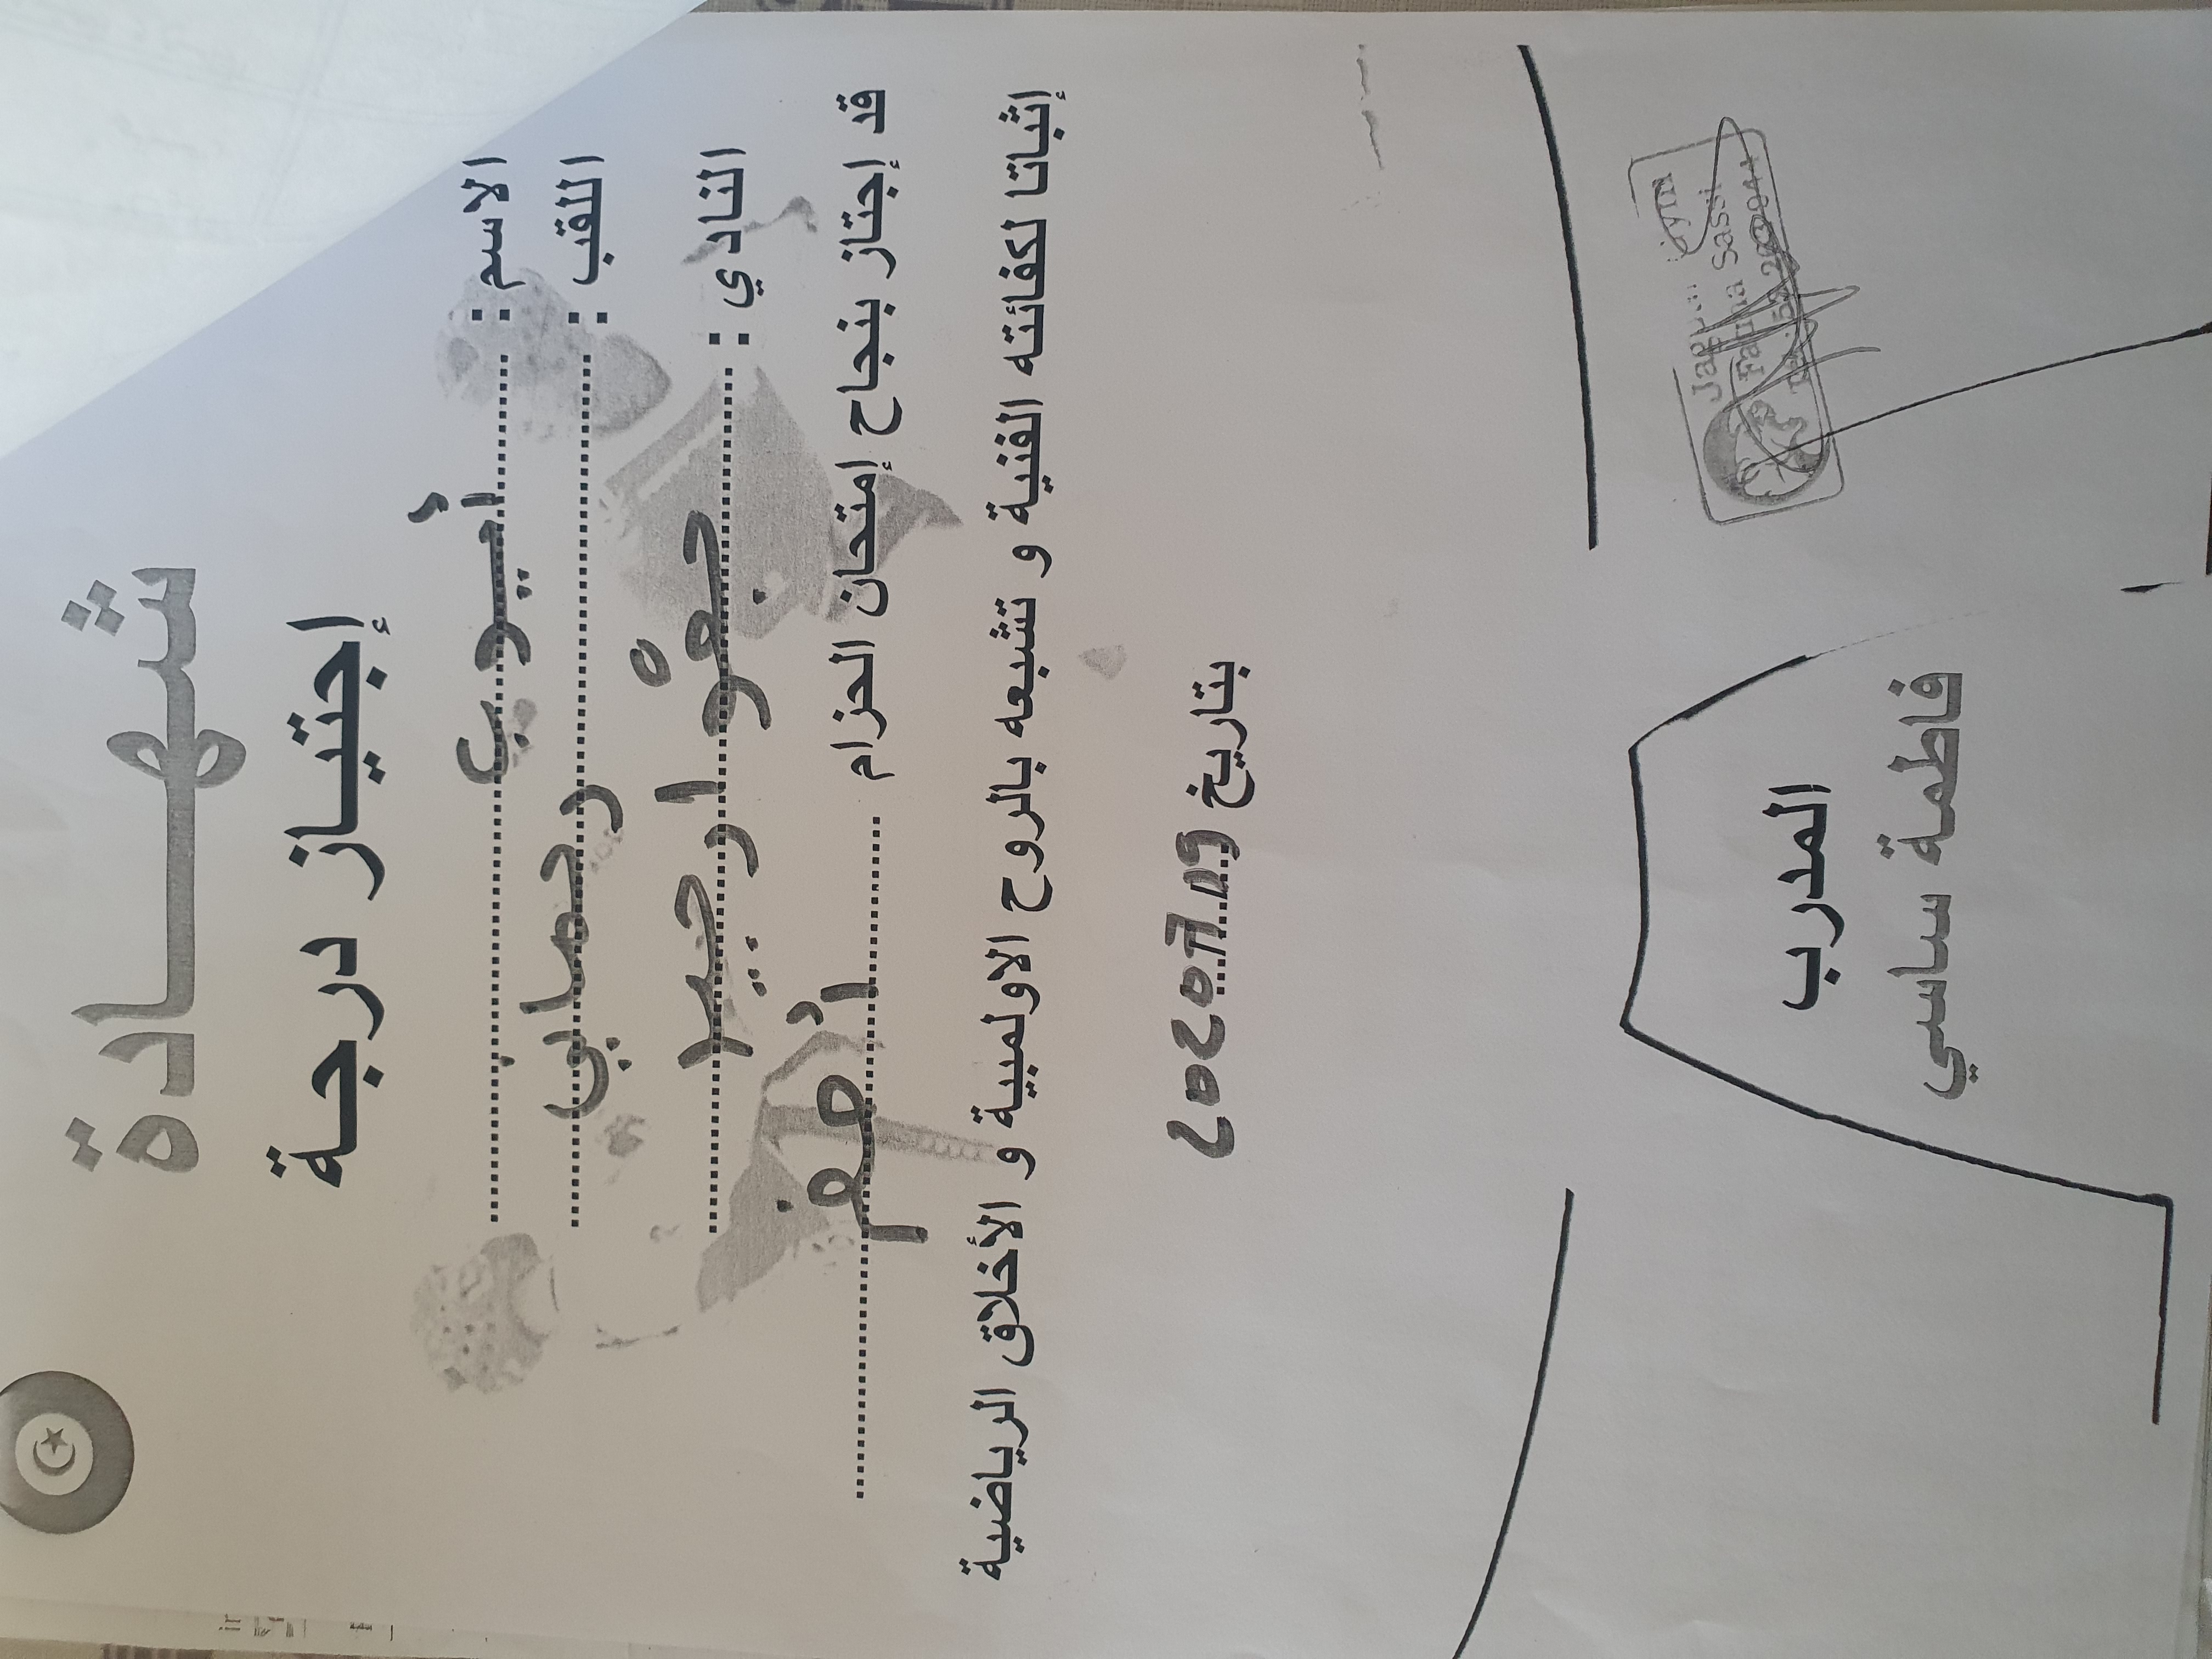 شهادة
إجتياز درجة
الاسم : أيوب
اللقب : رحماني
النادي :
قد إجتاز بنجاح إمتحان الحزام أصفر
إثباتا لكفائته الفنية و تشبعه بالروح الاولمبية و الأخلاق الرياضية
بتاريخ
المدرب
فاطمة ساسي
Gym
Fatma Sassi